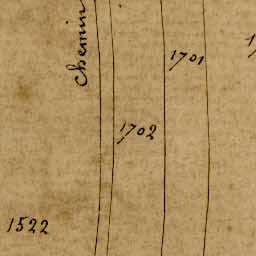 chemin
1701
1702
1522